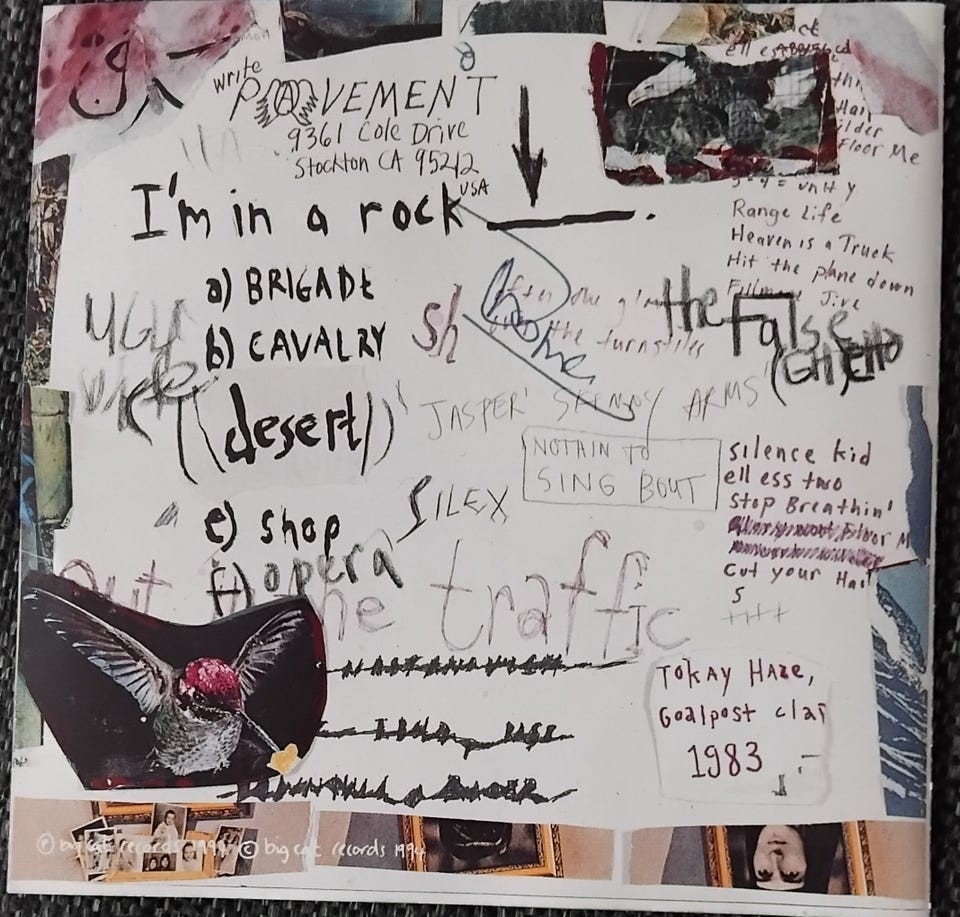 write
PAVEMENT
9361 Cole Drive
Stockton CA 95212
USA
I'm in a rock ____.
a) BRIGADE
b) CAVALRY
((desert))
e) shop
f) opera
UGLY
sh
home
After the
the turnstiles
JASPER' SKINNY ARMS'
NOTHIN TO
SING BOUT
SILEX
out the traffic
the False
(GHETTO
ell ess
Hair
Floor Me
5-4 = unity
Range Life
Heaven is a Truck
Hit the plane down
Fillmore Jive
silence kid
ell ess two
Stop Breathin'
Floor M
Cut your Hair
S
++++
TOKAY HAZE,
Goalpost clai
1983
© big cat records 1994 © big cat records 1994